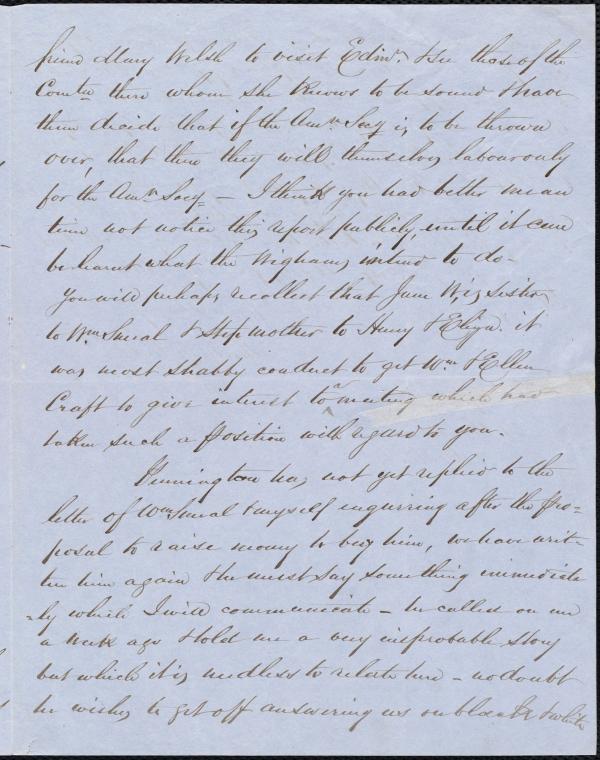 friend Mary Welsh to visit Edinr. & see those of the
Comtee there whom she knows to be sound & have
them decide that if the Amn Socy is to be thrown
over, that then they will themselves labour only
for the Amn Socy — I think you had better mean
time not notice this report publicly, until it can
be learnt what the Wighams intend to do —
You will perhaps recollect that Jane W. is sister
to Wm Smeal & Stepmother to Henry & Eliza. it
was most shabby conduct to get Wm & Ellen
Craft to give interest to a meeting which had
taken such a position with regard to you.
Pennington has not yet replied to the
letter of Wm Smeal & myself enquiring after the pro=
posal to raise money to buy him, we have writ=
ten him again & he must say something immediate
=ly which I will communicate — he called on me
a week ago & told me a very improbable story
but which it is needless to relate here — no doubt
he wishes to get off answering us in black & white